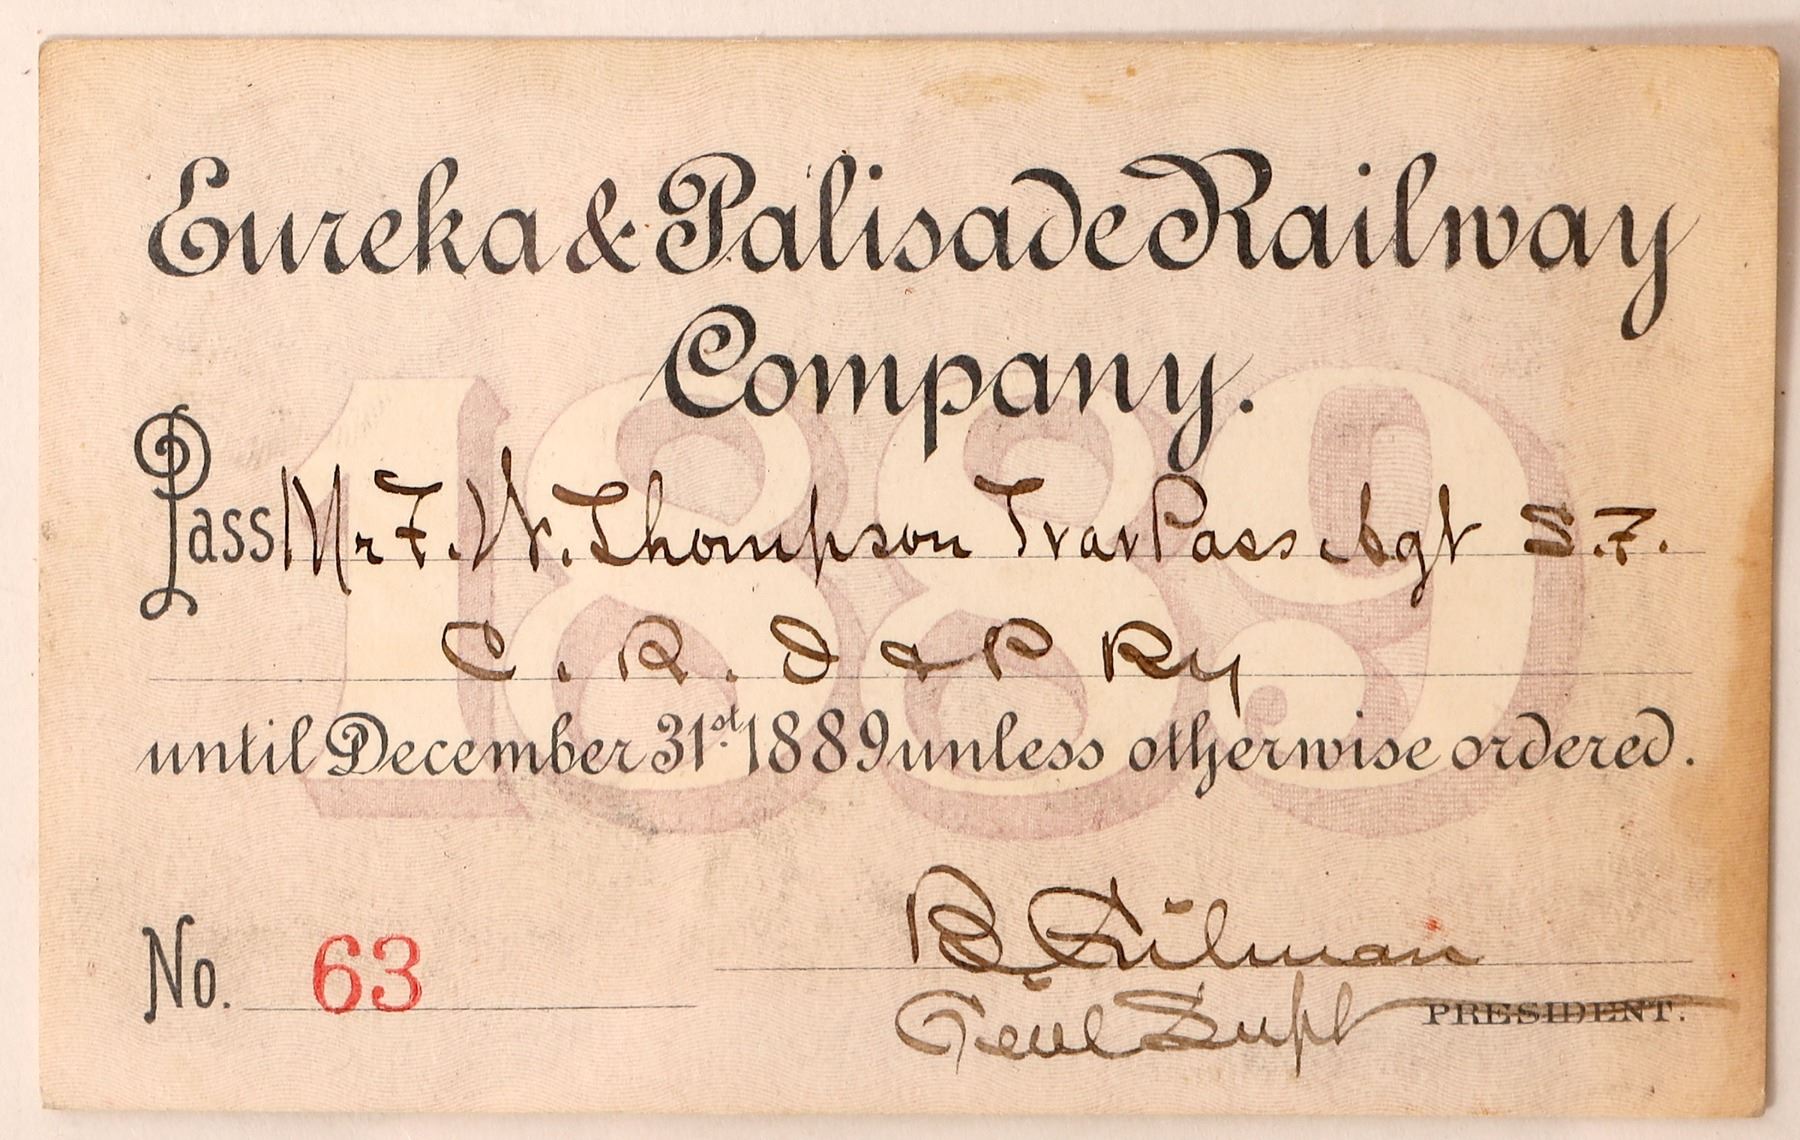 Eureka & Palisade Railway
Company.
1889
Pass Mr F. W. Thompson Trav Pass Agt S.F.
C. R. I & P Ry
until December 31st. 1889 unless otherwise ordered.
No. 63
B Gilman
Genl Supt PRESIDENT.